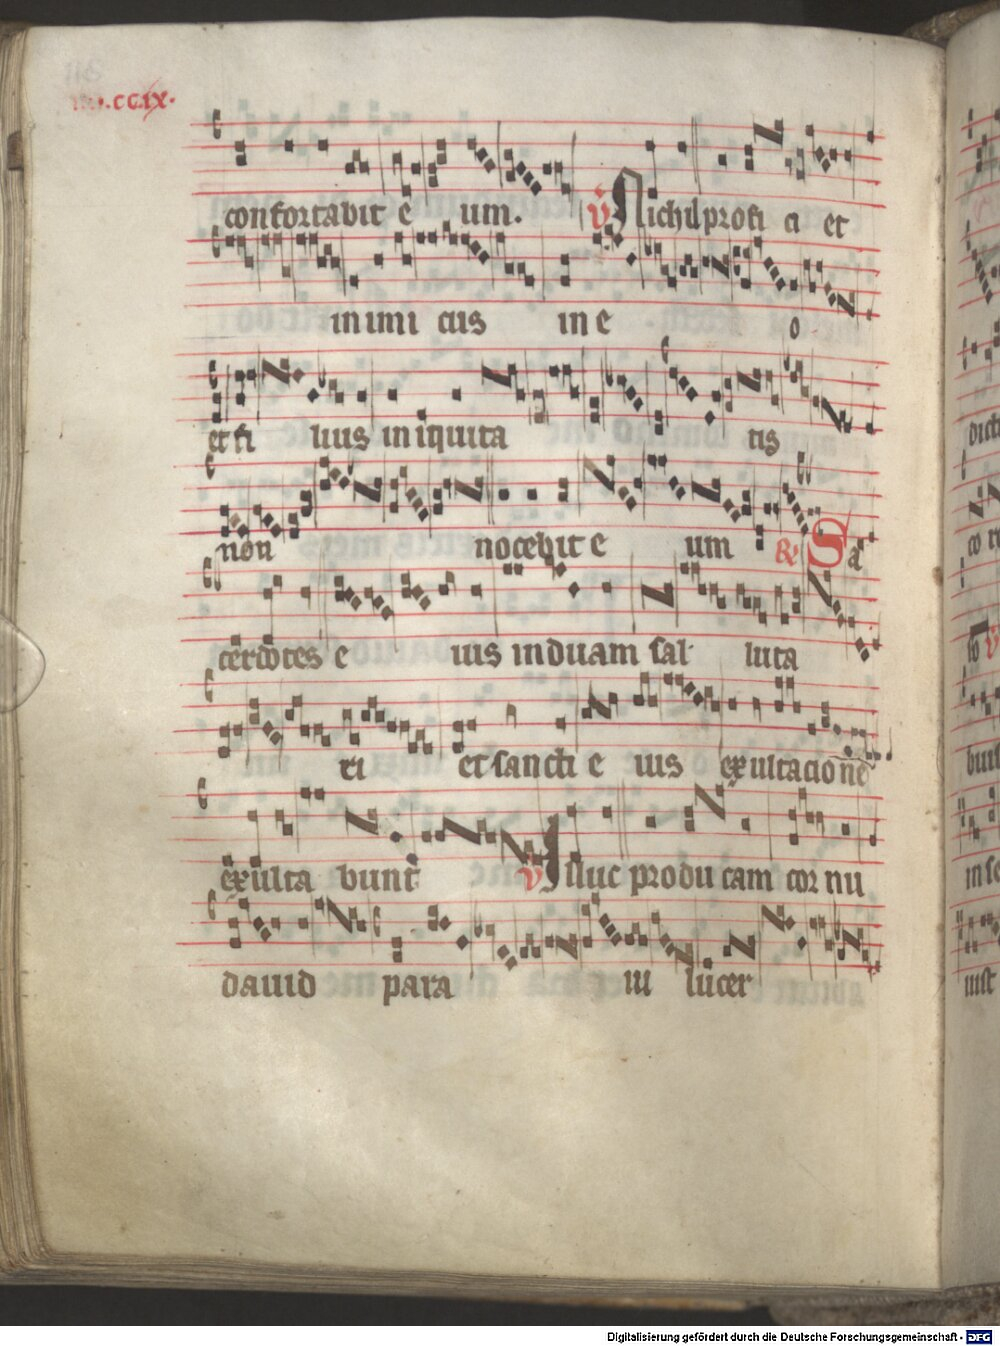 118
.CCIX.
confortabit e um. v Nichil profi ci et
inimi cus in e o
et fi lius in iquita tis
non nocebit e um R Sa
cerdotes e ius induam sal luta
ri et sancti e ius exultatione
exulta bunt v Illuc produ cam cor nu
dauid para ui lucer
Digitalisierung gefördert durch die Deutsche Forschungsgemeinschaft - DFG